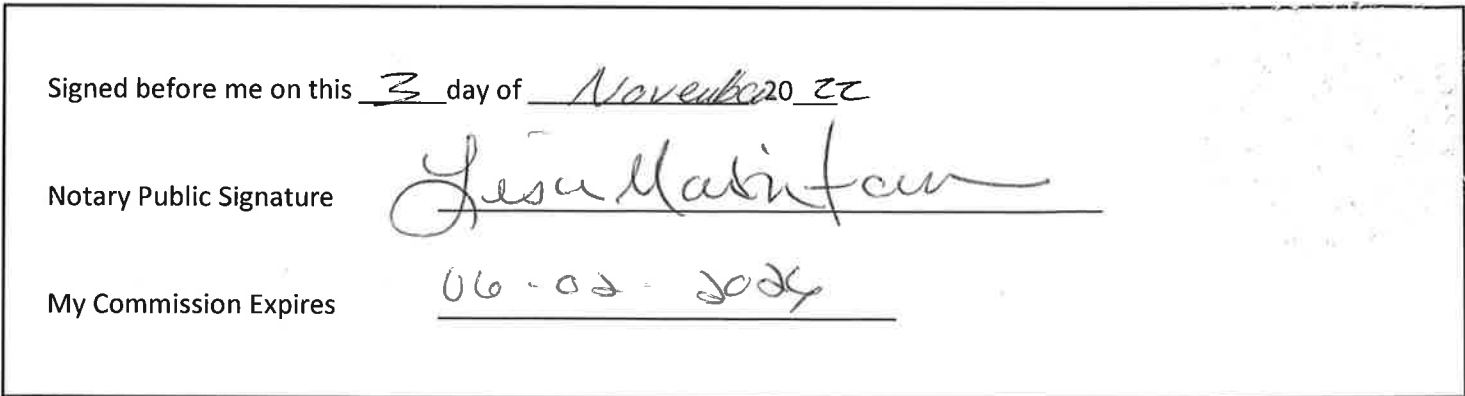 Signed before me on this 3 day of November 20 22
Notary Public Signature Lisa
My Commission Expires 06-02-2024